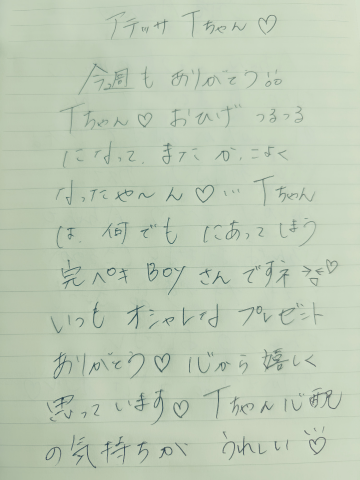 アデッサ Tちゃん♡
今週も ありがとう
Tちゃん♡ おひげ つるつる
になって、またかっこよく
なったや〜ん♡… Tちゃん
は、何でも にあってしまう
完ペキ BOY さんですネ♡
いつも オシャレな プレゼント
ありがとう♡ 心から 嬉しく
思っています♡ Tちゃん心配
の気持ちが うれしい♡